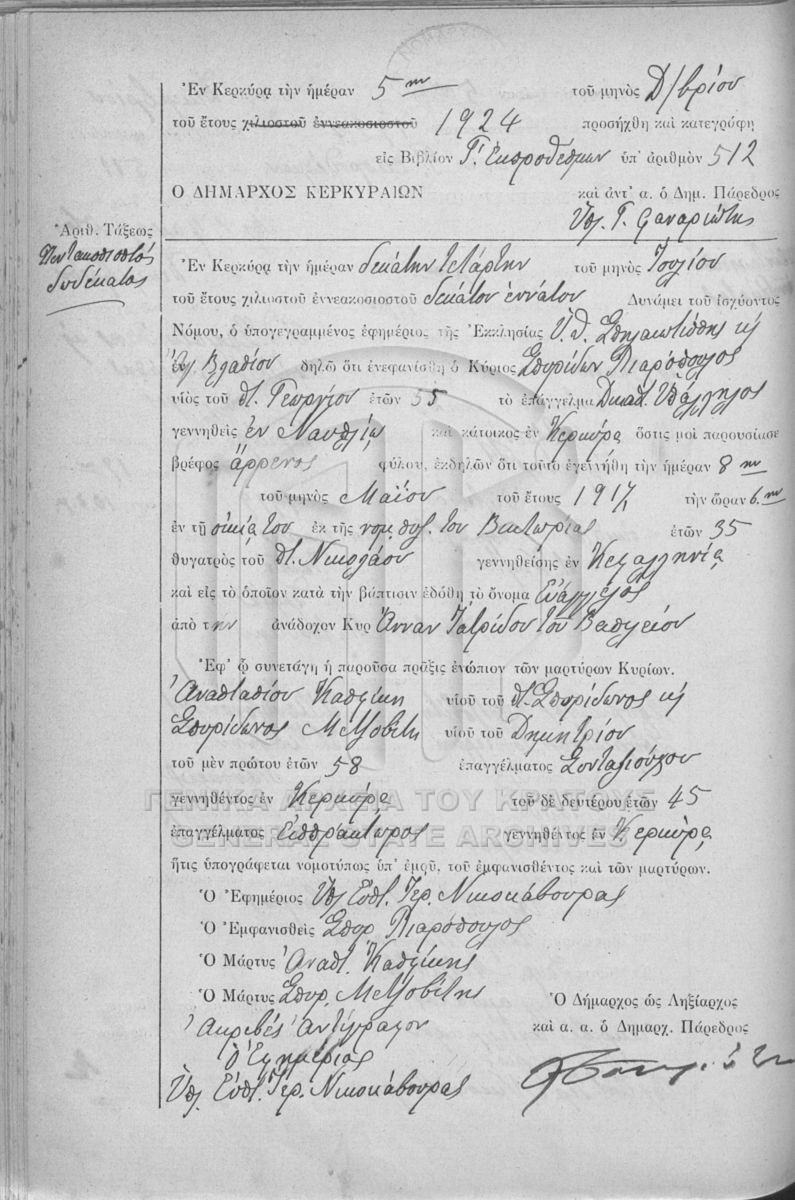 Ἐν Κερκύρᾳ τὴν ἡμέραν 5ην τοῦ μηνὸς Δ/βρίου
τοῦ ἔτους χιλιοστοῦ ἐννεακοσιοστοῦ 1924 προσήχθη καὶ κατεγράφη
εἰς Βιβλίον Γ' Ἐκπροθέσμων ὑπ' ἀριθμὸν 512
Ο ΔΗΜΑΡΧΟΣ ΚΕΡΚΥΡΑΙΩΝ καὶ ἀντ' α. ὁ Δημ. Πάρεδρος
Ὑπ. Γ. Φαναριώτης
Ἀριθ. Τάξεως
Πεντακοσιοστός
δωδέκατος
Ἐν Κερκύρᾳ τὴν ἡμέραν δεκάτην τετάρτην τοῦ μηνὸς Ἰουλίου
τοῦ ἔτους χιλιοστοῦ ἐννεακοσιοστοῦ δεκάτου ἐννάτου Δυνάμει τοῦ ἰσχύοντος
Νόμου, ὁ ὑπογεγραμμένος ἐφημέριος τῆς Ἐκκλησίας Ὑ. Θ. Σπηλαιωτίσσης κ
Βλασίου δηλῶ ὅτι ἐνεφανίσθη ὁ Κύριος Σπυρίδων Λιαρόπουλος
υἱὸς τοῦ π. Γεωργίου ἐτῶν 55 τὸ ἐπάγγελμα Δικαστ. Ὑπάλληλος
γεννηθεὶς ἐν Ναυπλίῳ καὶ κάτοικος ἐν Κερκύρᾳ ὅστις μοὶ παρουσίασε
βρέφος ἄρρενος φύλου, ἐκδηλῶν ὅτι τοῦτο ἐγεννήθη τὴν ἡμέραν 8ην
τοῦ μηνὸς Μαΐου τοῦ ἔτους 1917 τὴν ὥραν 6ην
ἐν τῇ οἰκίᾳ του ἐκ τῆς νομ. συζ. του Βικτωρίας ἐτῶν 35
θυγατρὸς τοῦ π. Νικολάου γεννηθείσης ἐν Κεφαλληνίᾳ
καὶ εἰς τὸ ὁποῖον κατὰ τὴν βάπτισιν ἐδόθη τὸ ὄνομα Εὐάγγελος
ἀπὸ τὴν ἀνάδοχον Κυρ Ἄνναν Ἰατρίδου τοῦ Βασιλείου
Ἐφ' ᾧ συνετάγη ἡ παροῦσα πρᾶξις ἐνώπιον τῶν μαρτύρων Κυρίων.
Ἀναστασίου υἱοῦ τοῦ π. Σπυρίδωνος κ
Σπυρίδωνος Μετσοβίτη υἱοῦ τοῦ Δημητρίου
τοῦ μὲν πρώτου ἐτῶν 58 ἐπαγγέλματος Συνταξιούχου
γεννηθέντος ἐν Κερκύρᾳ τοῦ δὲ δευτέρου ἐτῶν 45
ἐπαγγέλματος Εἰσπράκτωρος γεννηθέντος ἐν Κερκύρᾳ,
ἥτις ὑπογράφεται νομοτύπως ὑπ' ἐμοῦ, τοῦ ἐμφανισθέντος καὶ τῶν μαρτύρων.
Ὁ Ἐφημέριος Ὑπ. Εὐστ. Ἱερ. Νικοκάβουρας
Ὁ Ἐμφανισθεὶς Σπυρ Λιαρόπουλος
Ὁ Μάρτυς Ἀναστ.
Ὁ Μάρτυς Σπυρ. Μετσοβίτης
Ὁ Δήμαρχος ὡς Ληξίαρχος
Ἀκριβὲς Ἀντίγραφον καὶ α. α. ὁ Δημαρχ. Πάρεδρος
ὁ Ἐφημέριος
Ὑπ. Εὐστ. Ἱερ. Νικοκάβουρας
ΓΕΝΙΚΑ ΑΡΧΕΙΑ ΤΟΥ ΚΡΑΤΟΥΣ
GENERAL STATE ARCHIVES